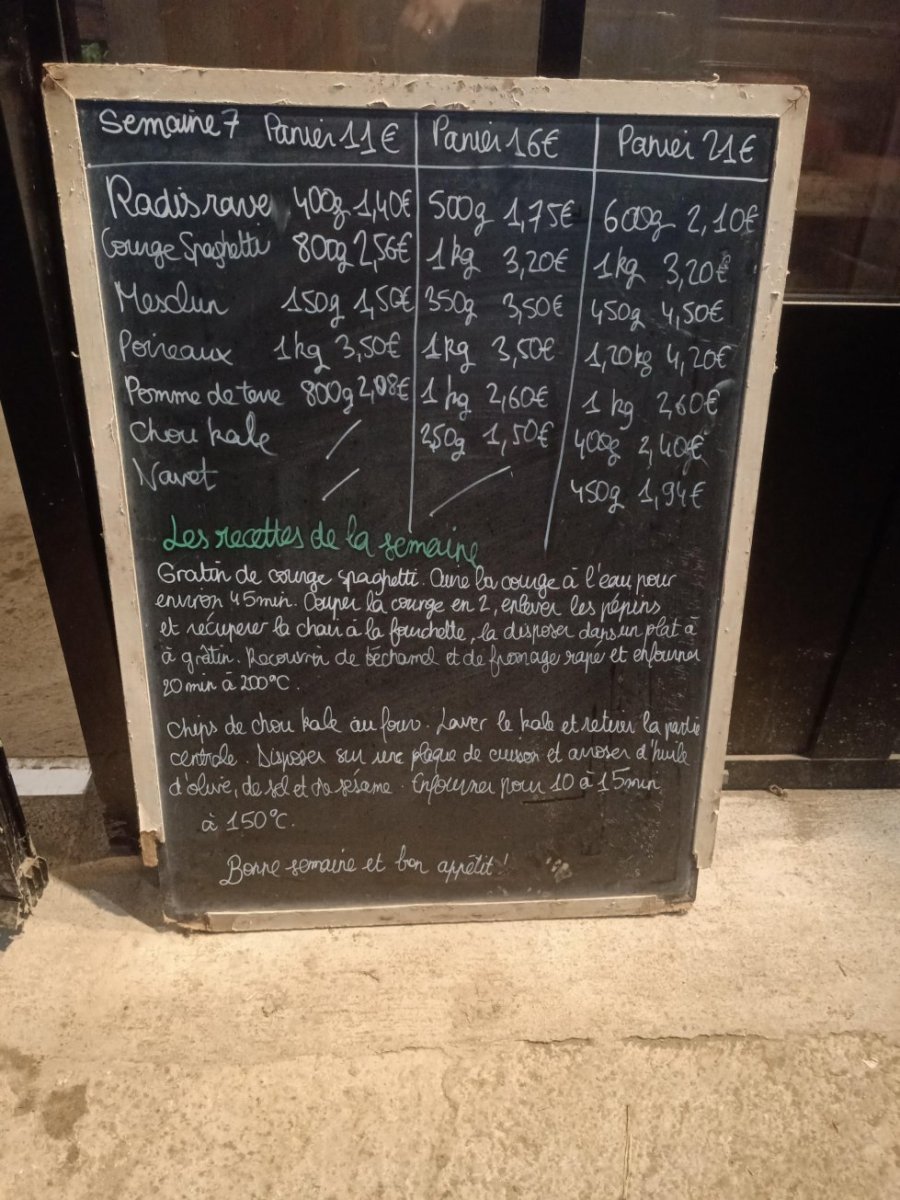 Semaine 7 Panier 11€ Panier 16€ Panier 21€
Radis rave 400g 1,40€ 500g 1,75€ 600g 2,10€
Courge Spaghetti 800g 2,56€ 1kg 3,20€ 1kg 3,20€
Mesclun 150g 1,50€ 350g 3,50€ 450g 4,50€
Poireaux 1kg 3,50€ 1kg 3,50€ 1,20kg 4,20€
Pomme de terre 800g 2,08€ 1 kg 2,60€ 1 kg 2,60€
Chou kale / 250g 1,50€ 400g 2,40€
Navet / / 450g 1,94€
Les recettes de la semaine
Gratin de courge spaghetti. Cuire la courge à l'eau pour
environ 45min. Couper la courge en 2, enlever les pépins
et récupérer la chair à la fourchette, la disposer dans un plat à
à grâtin. Recouvrir de béchamel et de fromage rapé et enfourner
20 min à 200°C.
Chips de chou kale au four. Laver le kale et retirer la partie
centrale. Disposer sur une plaque de cuisson et arroser d'huile
d'olive, de sel et de sésame. Enfourner pour 10 à 15min
à 150°C.
Bonne semaine et bon appétit!